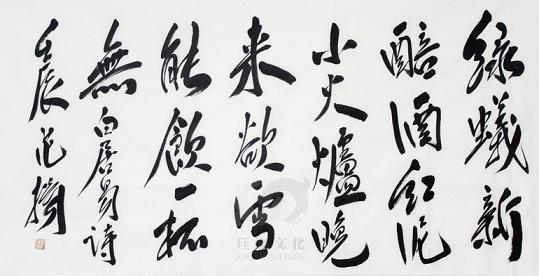 緑蟻新
醅酒紅泥
小火爐晚
来欲雪
能飲一杯
無 白居易詩
壬辰
文化
CULTURE